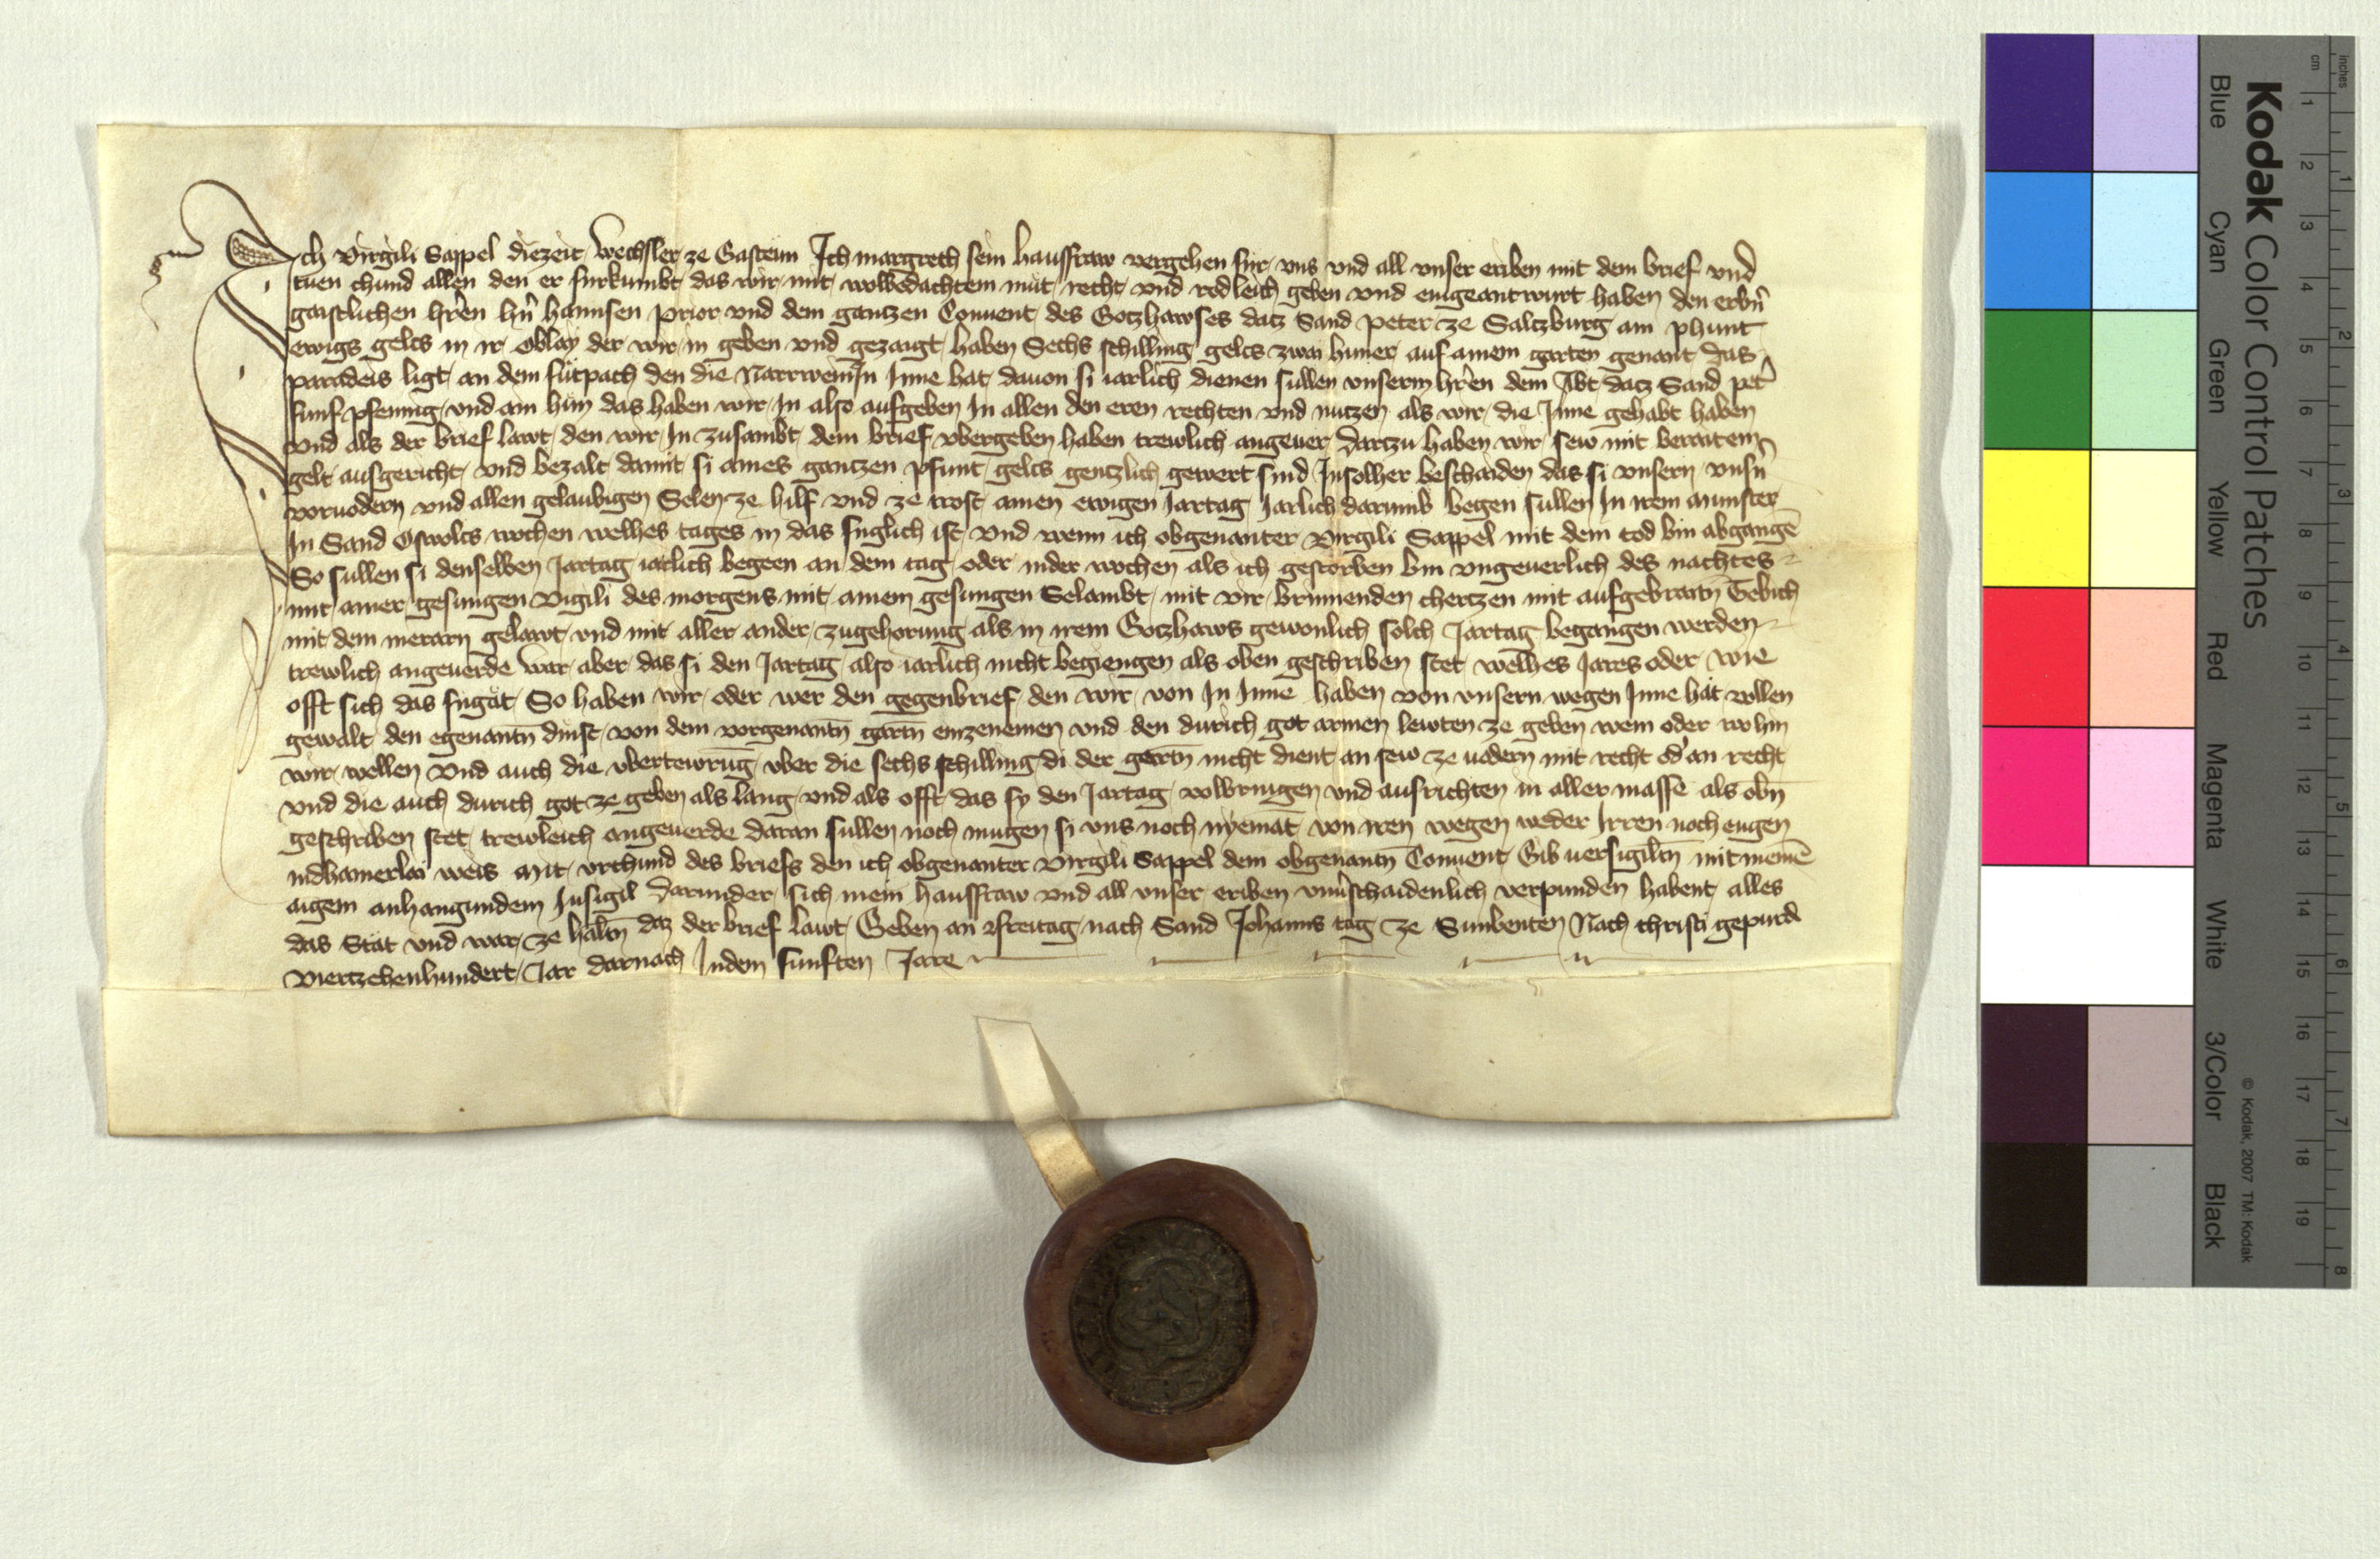 Ich Virgili Sappel diezeit Wechsler ze Gastewn Ich margreth sein hausfraw vergehen für uns und all unser eriben mit dem brief und
tuen chund allen den er furkumbt das wir mit wolbedachtem mut recht und redleich geben und eingeantwurt haben den erbn̄
gaistlichen hr̄en hn̄ hannsen prior und dem gantzen Convent des Gotzhawses datz Sand peter ze Saltzburg am phunt
ewigs gelts in ir Oblay der wir in geben und gezaigt haben Sechs schilling gelts zwai huner auf ainem garten genant das
paradeis ligt an dem fürpach den die Narrweinīn Inne hat dauon si iarlich dienen sullen unserm hr̄en dem Abt datz Sand pet̄
funf pfennig und ain hün das haben wir In also aufgeben In allen den eren rechten und nutzen als wir die Inne gehabt haben
und als der brief lawt den wir In zusambt dem brief ubergeben haben trewlich angeuer Dartzu haben wir sew mit berautem
gelt ausgericht und bezalt damit si aines gantzen pfunt gelts gentzlich gewert sind Insolher beschaiden das si unsern unsn̄
voruodern und allen gelaubigen Selen ze hilf und ze trost ainen ewigen Jartag Jarlich darumb begen sullen In irem munster
In Sand Oswolts wochen welhes tages in das fuglich ist und wenn ich obgenanter Virgili Sappel mit dem tod bin abgangē
So sullen si denselben Jartag iarlich begeen an dem tag oder inder wochen als ich gestorben bin ungeuerlich des nachtes
mit ainer gesungen Vigili des morgens mit ainem gesungen Selambt mit vir brinnenden chertzen mit aufgebraitn̄ Tebich
mit dem merarn gelawt und mit aller ander zugehorung als in irem Gotzhaws gewonlich solch Jartag begangen werden
trewlich angeuerde Wär aber das si den Jartag also iarlich nicht begiengen als oben geschriben stet welhes Jares oder wie
offt sich das fugät So haben wir oder wer den gegenbrief den wir von In Inne haben von unsern wegen Inne hat vollen
gewalt den egenantn̄ dinst von dem vorgenantn̄ gartn̄ einzenemen und den durich got armen lewten ze geben wem oder wohin
wir wellen Und auch die ubertewrūg uber die sechs schilling di der gartn̄ nicht dient an sew ze uodern mit recht od̄ an recht
und die auch durich got ze geben als lang und als offt das sy den Jartag volbringen und ausrichten in aller massē als obn̄
geschriben stet trewleich angeuerde daran sullen noch mugen si uns noch nyemāt von iren wegen weder Irren noch engen
indhainerlai weis Mit urchund des briefs den ich obgenanter Virgili Sappel dem obgenantn̄ Conuent Gib uersigiltn̄ mit meinē
aigem anhangundem Insigil Darunder sich mein hausfraw und all unser eriben unūschaidenlich verpunden habent alles
das Stät und war ze haltn̄ daz der brief lawt Geben an freitag nach Sand Johanns tag ze Sunbenten Nach christi gepurd
Viertzehenhundert Jar darnach Indem funften Jare
Kodak Color Control Patches
Blue Cyan Green Yellow Red Magenta White 3/Color Black
© Kodak, 2007 TM: Kodak
inches 1 2 3 4 5 6 7 8
cm 1 2 3 4 5 6 7 8 9 10 11 12 13 14 15 16 17 18 19